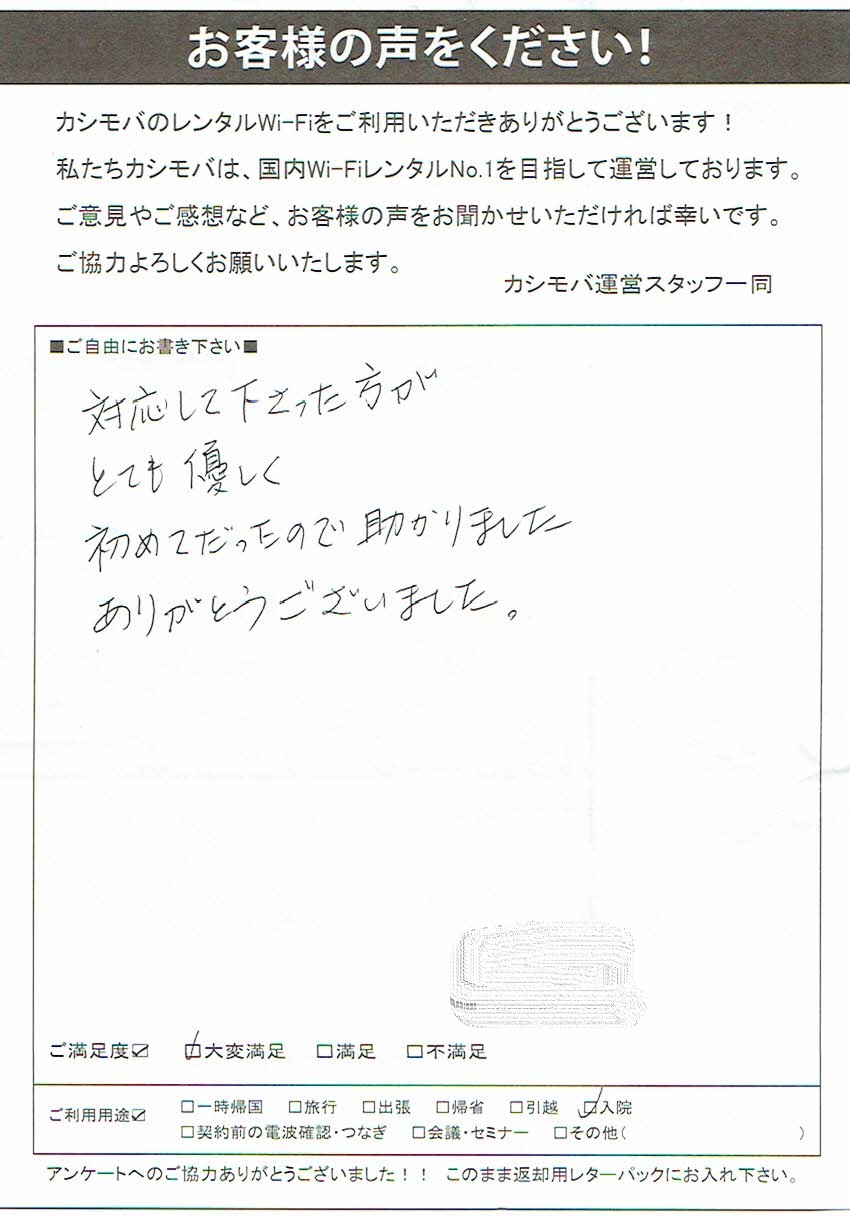 お客様の声をください!
カシモバのレンタルWi-Fiをご利用いただきありがとうございます！
私たちカシモバは、国内Wi-FiレンタルNo.1を目指して運営しております。
ご意見やご感想など、お客様の声をお聞かせいただければ幸いです。
ご協力よろしくお願いいたします。
カシモバ運営スタッフ一同
■ご自由にお書き下さい■
対応して下さった方が
とても優しく
初めてだったので助かりました
ありがとうございました。
ご満足度☑ ☑大変満足 □満足 □不満足
ご利用用途☑ □一時帰国 □旅行 □出張 □帰省 □引越 ☑入院
□契約前の電波確認・つなぎ □会議・セミナー □その他( )
アンケートへのご協力ありがとうございました！！ このまま返却用レターパックにお入れ下さい。